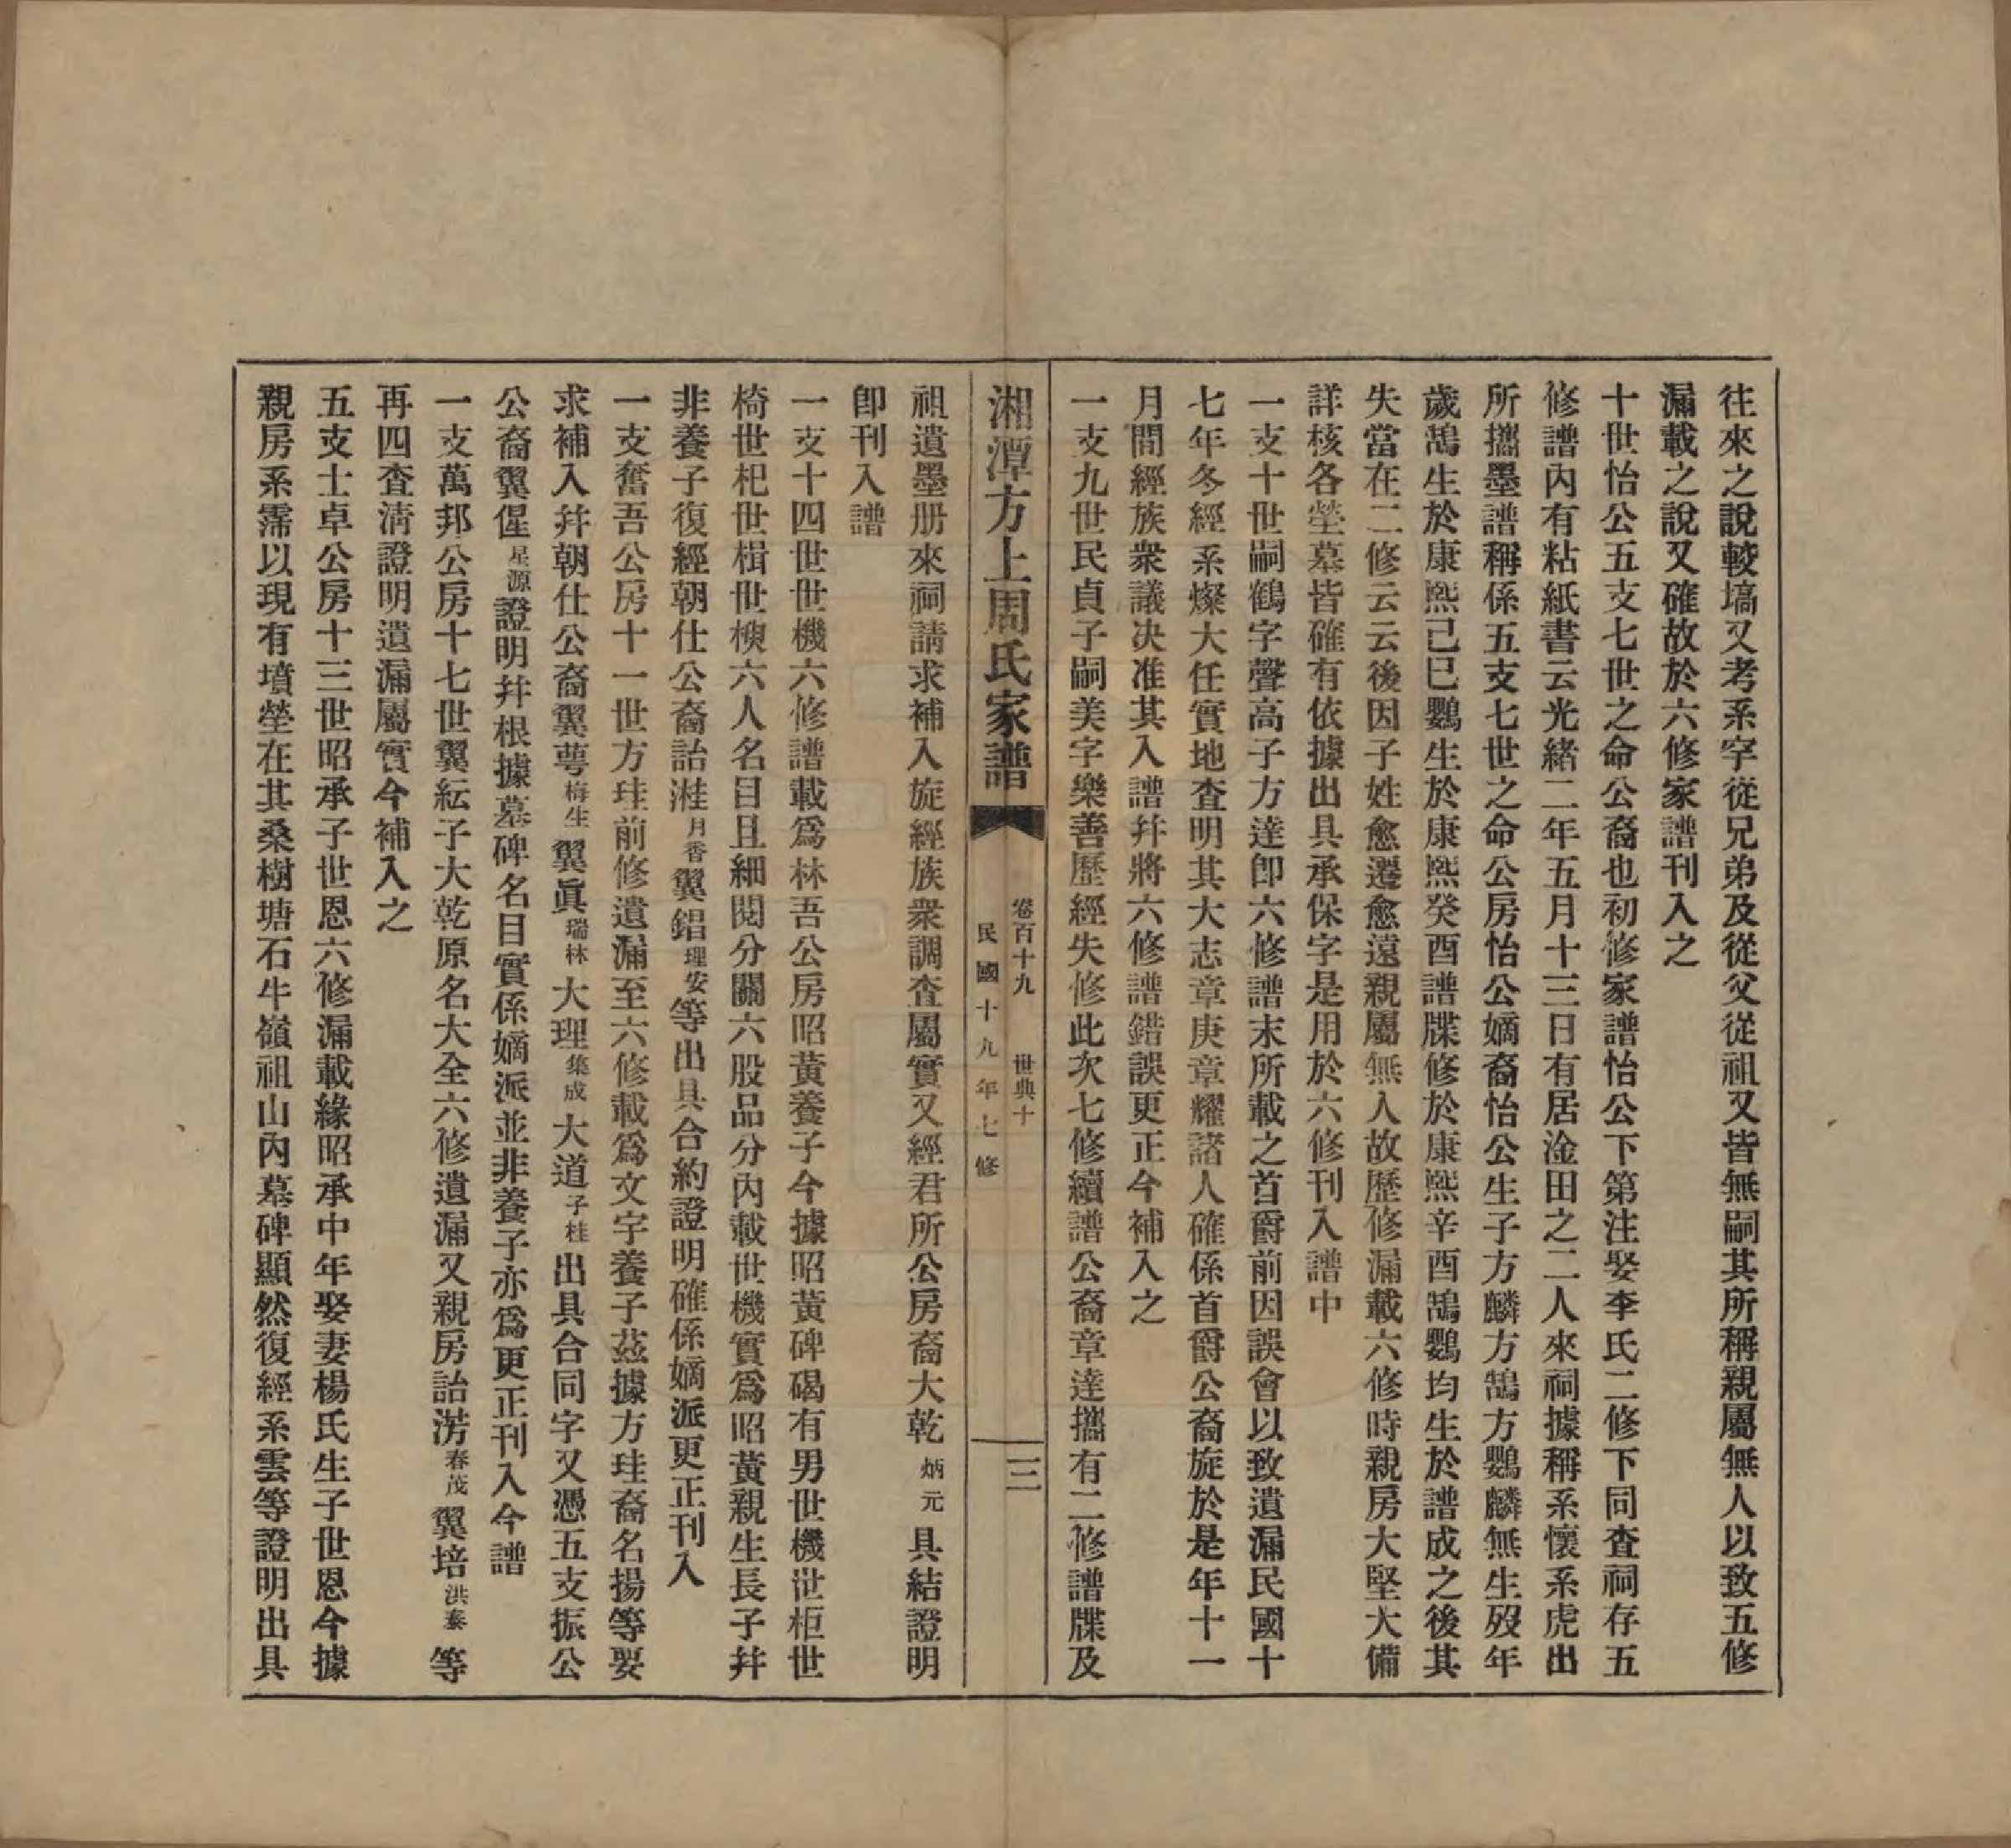 往來之說較塙又考系字從兄弟及從父從祖又皆無嗣其所稱親屬無人以致五修
漏載之說又確故於六修家譜刊入之
十世怡公五支七世之命公裔也初修家譜怡公下第注娶李氏二修下同查祠存五
修譜內有粘紙書云光緒二年五月十三日有居淦田之二人來祠據稱系懷系虎出
所攜墨譜稱係五支七世之命公房怡公嫡裔怡公生子方麟方鵠方鸚麟無生歿年
歲鵠生於康熙己巳鸚生於康熙癸酉譜牒修於康熙辛酉鵠鸚均生於譜成之後其
失當在二修云云後因子姓愈遷愈遠親屬無人故歷修漏載六修時親房大堅大備
詳核各塋墓皆確有依據出具承保字是用於六修刊入譜中
一支十世嗣鶴字聲高子方達即六修譜末所載之首爵前因誤會以致遺漏民國十
七年冬經系燦大任實地查明其大志章庚章耀諸人確係首爵公裔旋於是年十一
月間經族衆議决准其入譜并將六修譜錯誤更正今補入之
一支九世民貞子嗣美字樂善歷經失修此次七修續譜公裔章達攜有二修譜牒及
湘潭方上周氏家譜
卷百十九 世典十
民國十九年七修
三
祖遺墨册來祠請求補入旋經族衆調查屬實又經君所公房裔大乾炳元具結證明
卽刊入譜
一支十四世世機六修譜載爲林吾公房昭黃養子今據昭黃碑碣有男世機世柜世
椅世杞世楫世㮋六人名目且細閱分關六股品分內載世機實爲昭黃親生長子并
非養子復經朝仕公裔詒溎月香翼錩理安等出具合約證明確係嫡派更正刊入
一支奮吾公房十一世方珪前修遺漏至六修載爲文字養子茲據方珪裔名揚等要
求補入并朝仕公裔翼萼梅生翼眞瑞林大理集成大道子桂出具合同字又憑五支振公
公裔翼偟星源證明幷根據墓碑名目實係嫡派並非養子亦爲更正刊入今譜
一支萬邦公房十七世翼紜子大乾原名大全六修遺漏又親房詒淓春茂翼培洪泰等
再四查淸證明遺漏屬實今補入之
五支士卓公房十三世昭承子世恩六修漏載緣昭承中年娶妻楊氏生子世恩今據
親房系霈以現有墳塋在其桑樹塘石牛嶺祖山內墓碑顯然復經系雲等證明出具